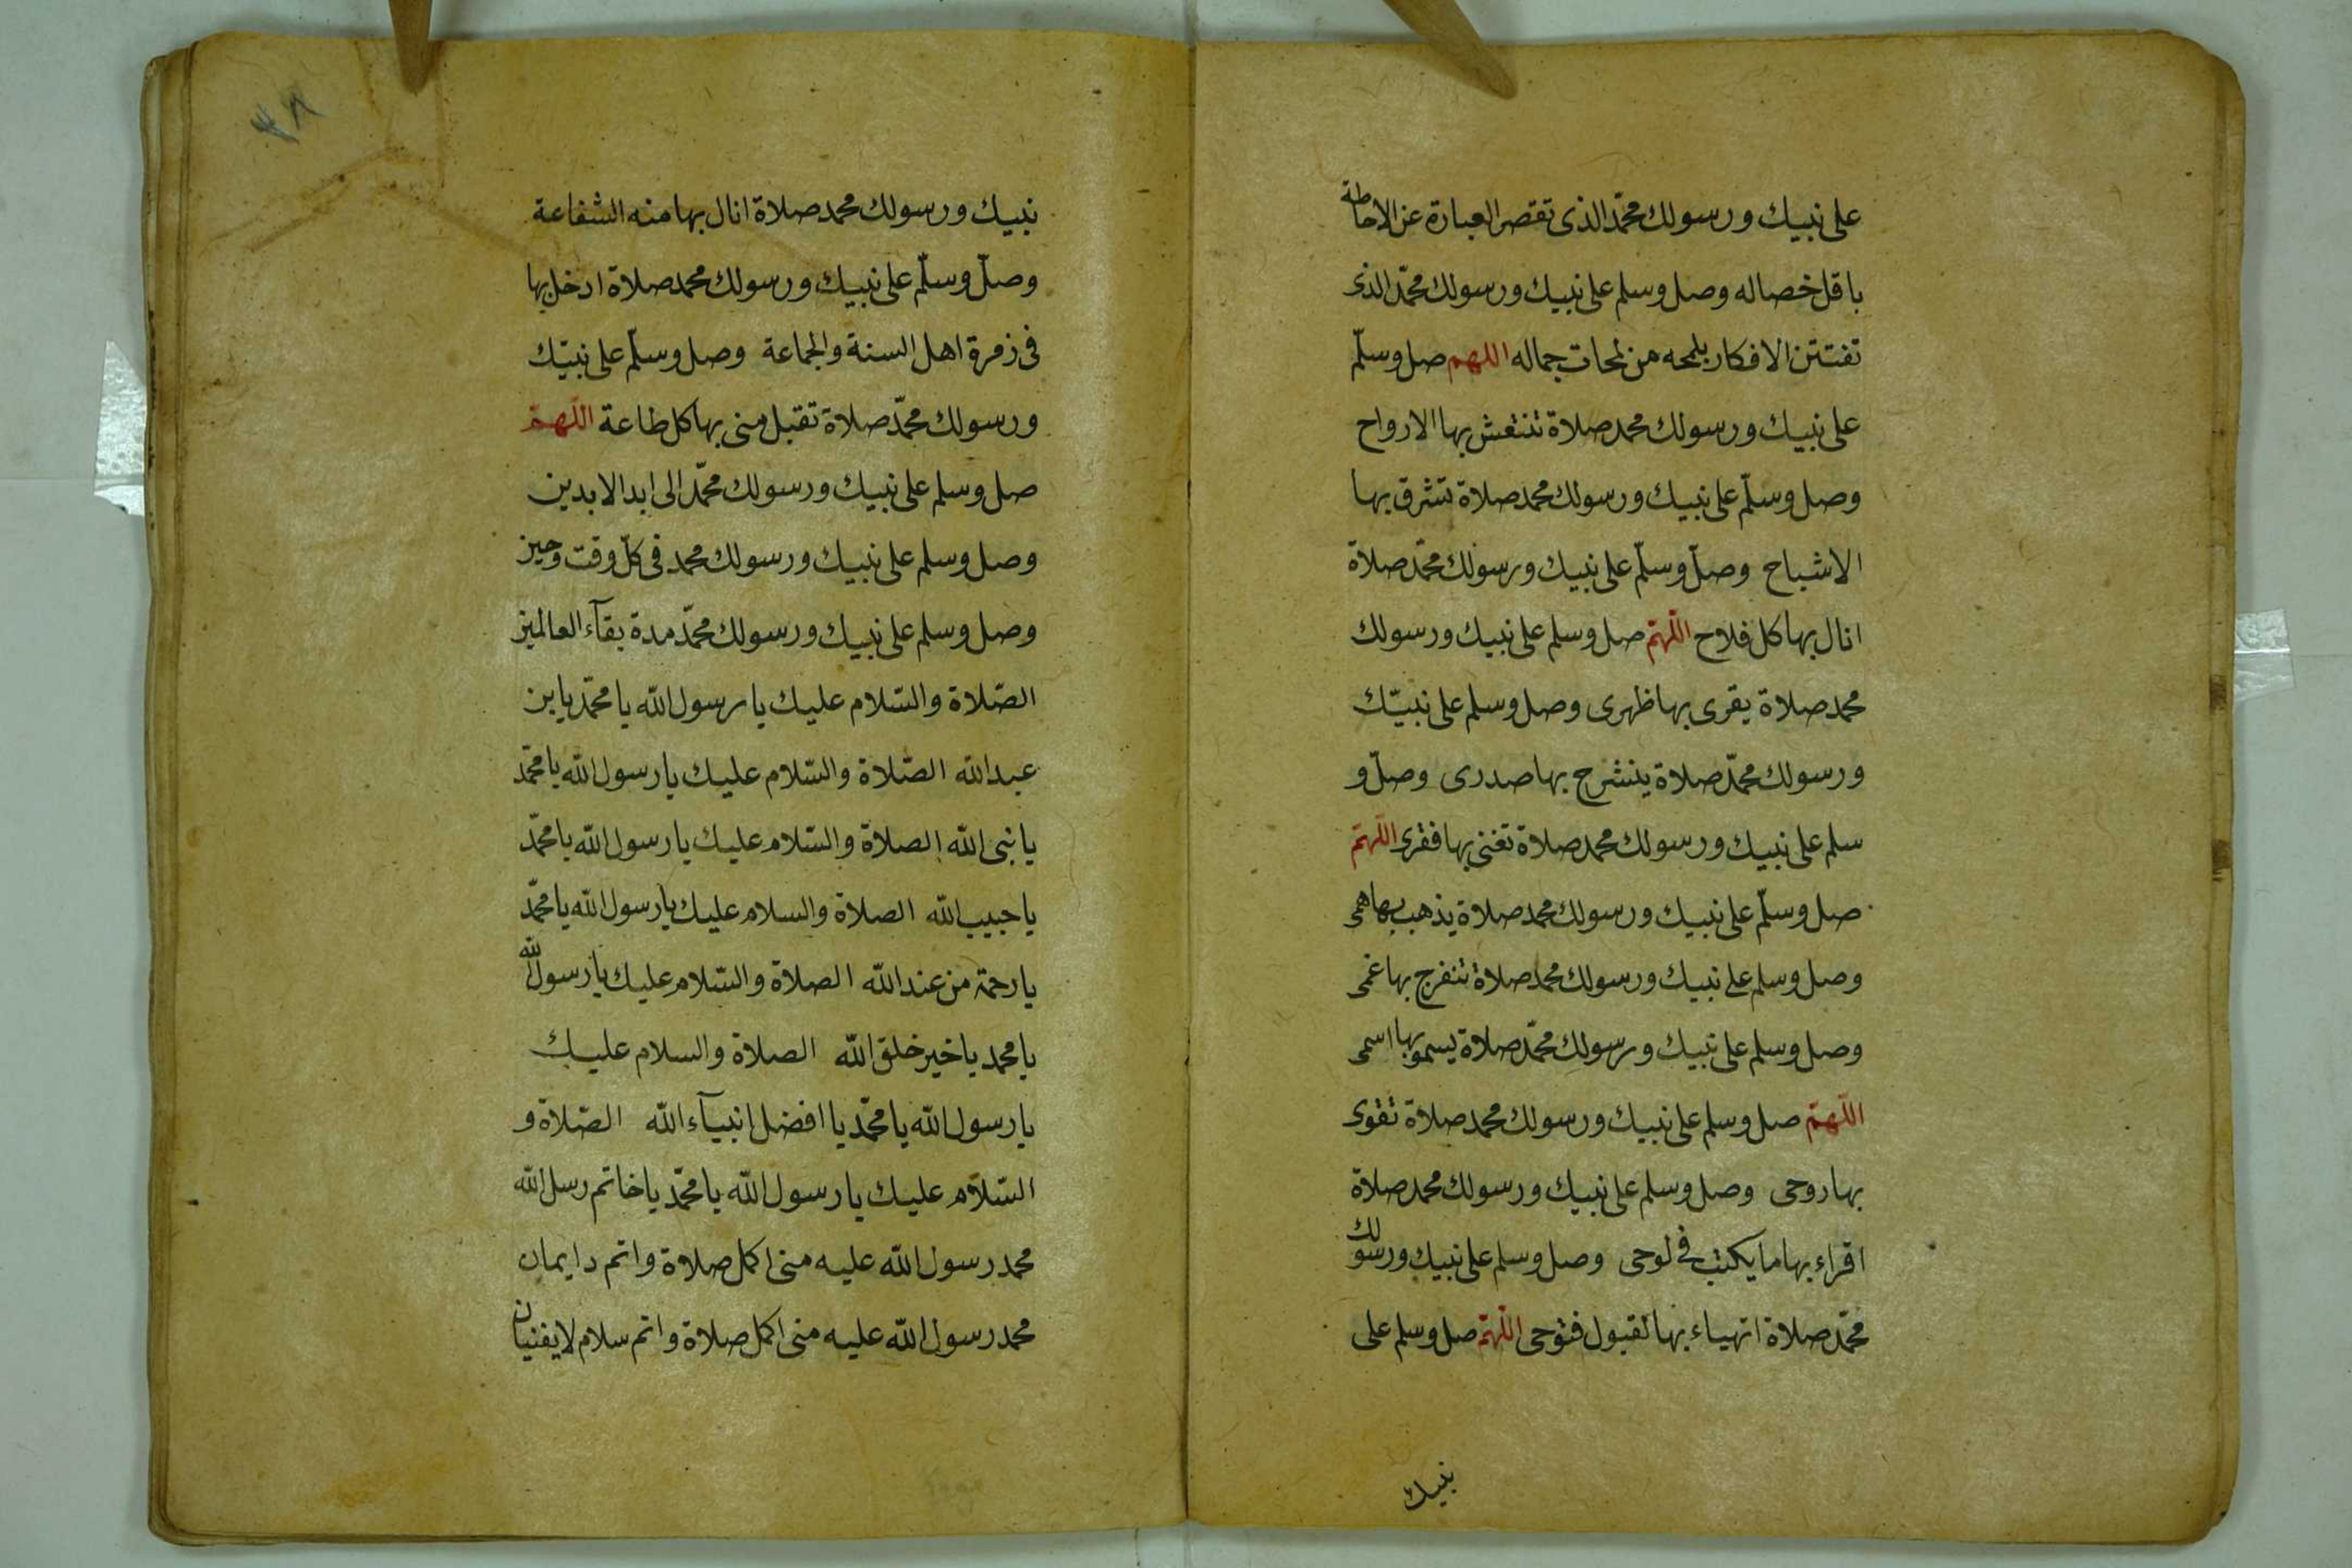 على نبيك ورسولك محمّد الذى تقصر العبارة عن الاحاطة
باقل خصاله وصل وسلم على نبيك ورسولك محمّد الذى
تفتتن الافكار بلمحه من لمحات جماله اللهم صل وسلّم
على نبيك ورسولك محمد صلاة تنتعش بها الارواح
وصل وسلّم على نبيك ورسولك محمد صلاة تشرق بها
الاشباح وصلّ وسلّم على نبيك ورسولك محمّد صلاة
انال بها كل فلاح اللهمّ صل وسلم على نبيك ورسولك
محمد صلاة يقوى بها ظهرى وصل وسلم على نبيّك
ورسولك محمّد صلاة ينشرح بها صدرى وصلّ و
سلم على نبيك ورسولك محمد صلاة تغنى بها فقرى اللهمّ
صل وسلّم على نبيك ورسولك محمد صلاة يذهب بها همى
وصل وسلم على نبيك ورسولك محمد صلاة تنفرج بها غمى
وصل وسلم على نبيك ورسولك محمّد صلاة يسمو بها اسمى
اللّهمّ صل وسلم على نبيك ورسولك محمد صلاة تقوى
بها روحى وصل وسلم على نبيك ورسولك محمد صلاة
اقراء بها ما يكتب فى لوحى وصل وسلم على نبيك ورسولك
محمّد صلاة اتهياء بها لقبول فتوحى اللهمّ صل وسلم على
نبيك
٣٨
نبيك ورسولك محمد صلاة انال بها منه الشفاعة
وصلّ وسلّم على نبيك ورسولك محمد صلاة ادخل بها
فى زمرة اهل السنة والجماعة وصل وسلّم على نبيّك
ورسولك محمّد صلاة تقبل منى بها كل طاعة اللّهمّ
صل وسلم على نبيك ورسولك محمّد الى ابد الابدين
وصل وسلم على نبيك ورسولك محمد فى كلّ وقت وحين
وصل وسلم على نبيك ورسولك محمّد مدة بقآء العالمين
الصّلاة والسّلام عليك يا رسول الله يا محمّد يا بن
عبد الله الصّلاة والسّلام عليك يا رسول الله يا محمّد
يا نبى الله الصلاة والسّلام عليك يا رسول الله يا محمّد
يا حبيب الله الصلاة والسلام عليك يا رسول الله يا محمّد
يا رحمة من عند الله الصلاة والسّلام عليك يا رسول الله
يا محمد يا خير خلق الله الصلاة والسلام عليك
يا رسول الله يا محمّد يا افضل انبيآء الله الصّلاة و
السّلام عليك يا رسول الله يا محمّد يا خاتم رسل الله
محمد رسول الله عليه منى اكمل صلاة واتم دايمان
محمد رسول الله عليه منى اكمل صلاة واتم سلام لا يفنيان